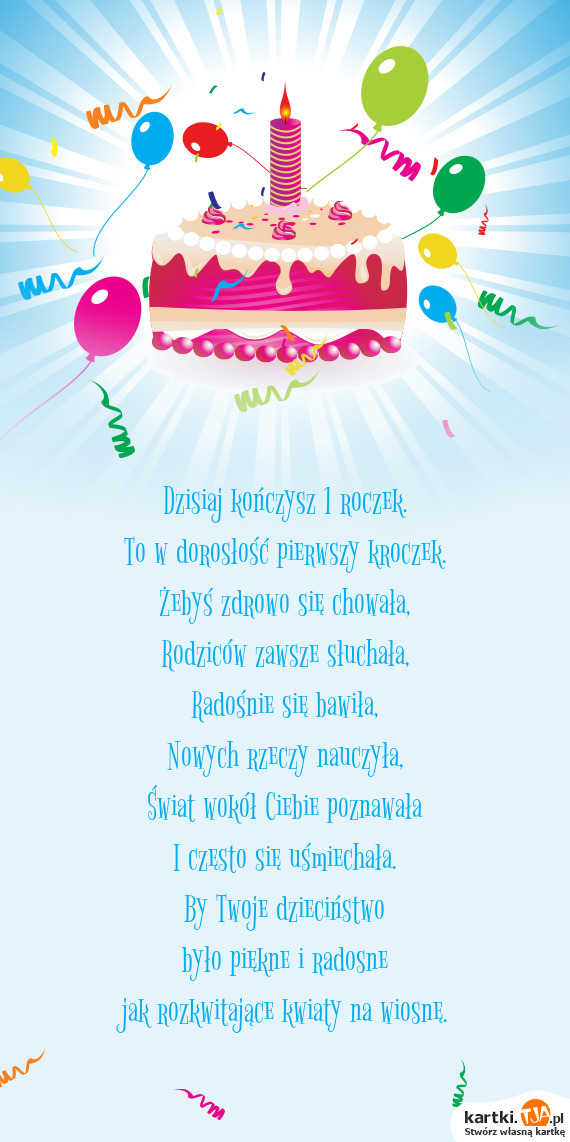 Dzisiaj kończysz 1 roczek.
To w dorosłość pierwszy kroczek.
Żebyś zdrowo się chowała,
Rodziców zawsze słuchała,
Radośnie się bawiła,
Nowych rzeczy nauczyła,
Świat wokół Ciebie poznawała
I często się uśmiechała.
By Twoje dzieciństwo
było piękne i radosne
jak rozkwitające kwiaty na wiosnę.
kartki.TJA.pl
Stwórz własną kartkę